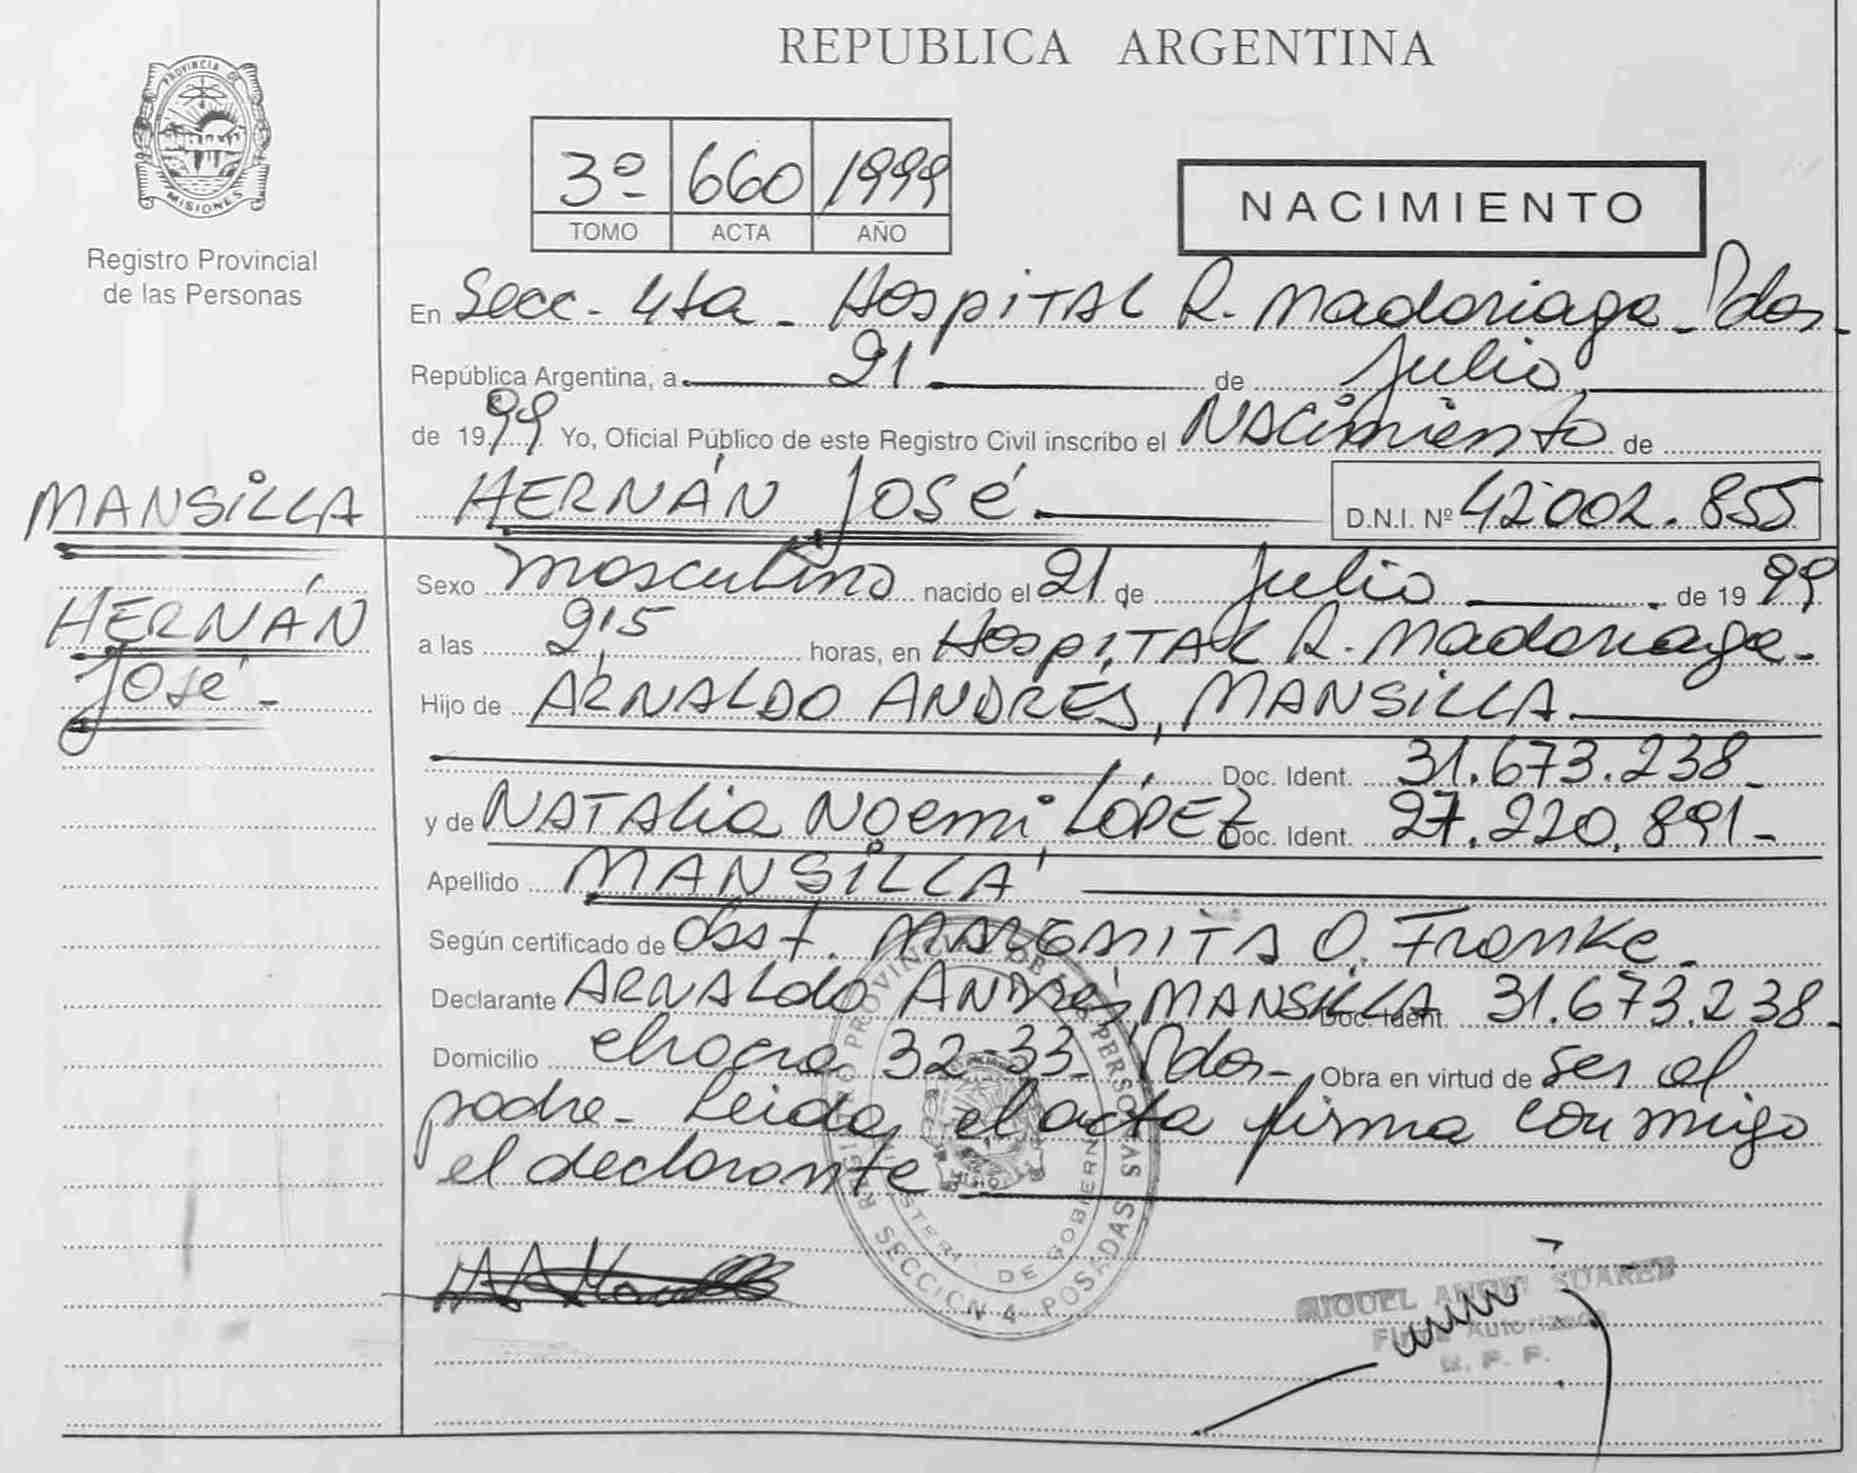 REPUBLICA ARGENTINA
PROVINCIA DE
MISIONES
Registro Provincial
de las Personas
3º 660 1999
TOMO ACTA AÑO
NACIMIENTO
En Secc - 4ta - Hospital R. Madariaga - Pdas -
República Argentina, a 21 de Julio
de 1999 Yo, Oficial Público de este Registro Civil inscribo el Nacimiento de
MANSILLA
HERNÁN JOSÉ D.N.I. Nº 42.002.855
HERNÁN
José -
Sexo masculino nacido el 21 de Julio de 1999
a las horas, en Hospital R. Madariaga -
Hijo de ARNALDO ANDRÉS, MANSILLA
Doc. Ident. 31.673.238 -
y de NATALIA NOEMI, LÓPEZ Doc. Ident. 27.220.891 -
Apellido MANSILLA
Según certificado de Obst. MARGARITA O. Franke -
Declarante ARNALDO ANDRÉS, MANSILLA Doc. Ident. 31.673.238 -
Domicilio chacra 32-33 - Pdas - Obra en virtud de ser el
padre - Leída el acta firma conmigo
el declarante
REGISTRO PROVINCIAL DE LAS PERSONAS
DE GOBIERNO
SECCION 4 POSADAS
MIGUEL ANGEL SUAREZ
Firma Autorizada